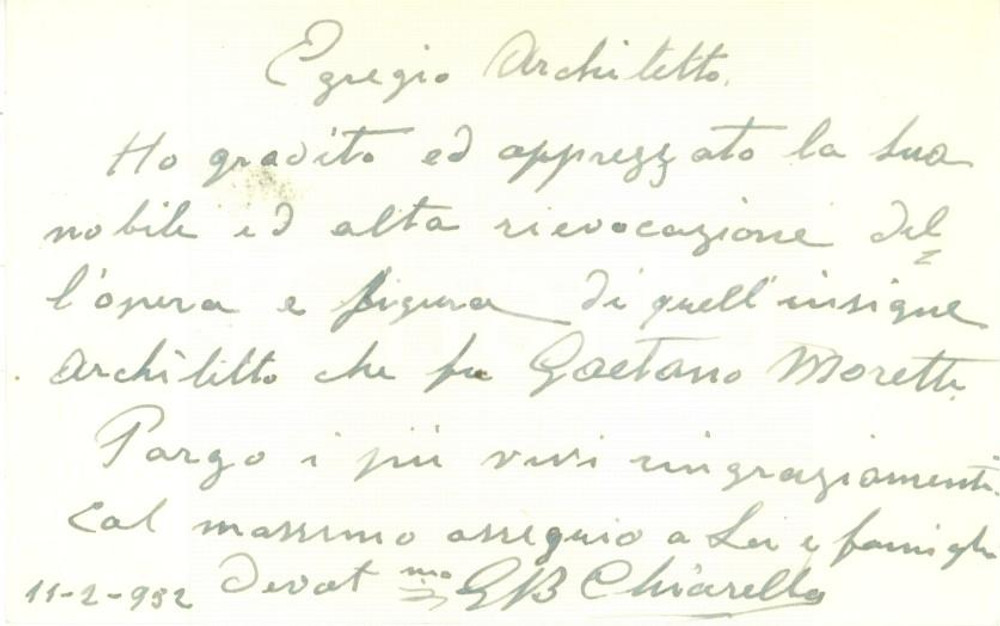 Egregio Architetto.
Ho gradito ed apprezzato la Sua
nobile ed alta rievocazione del=
l'opera e figura di quell'insigne
Architetto che fu Gaetano Moretti.
Porgo i più vivi ringraziamenti.
Col massimo osseguio a Lei e famiglia
Devot mo GB Chiarella
11-2-932